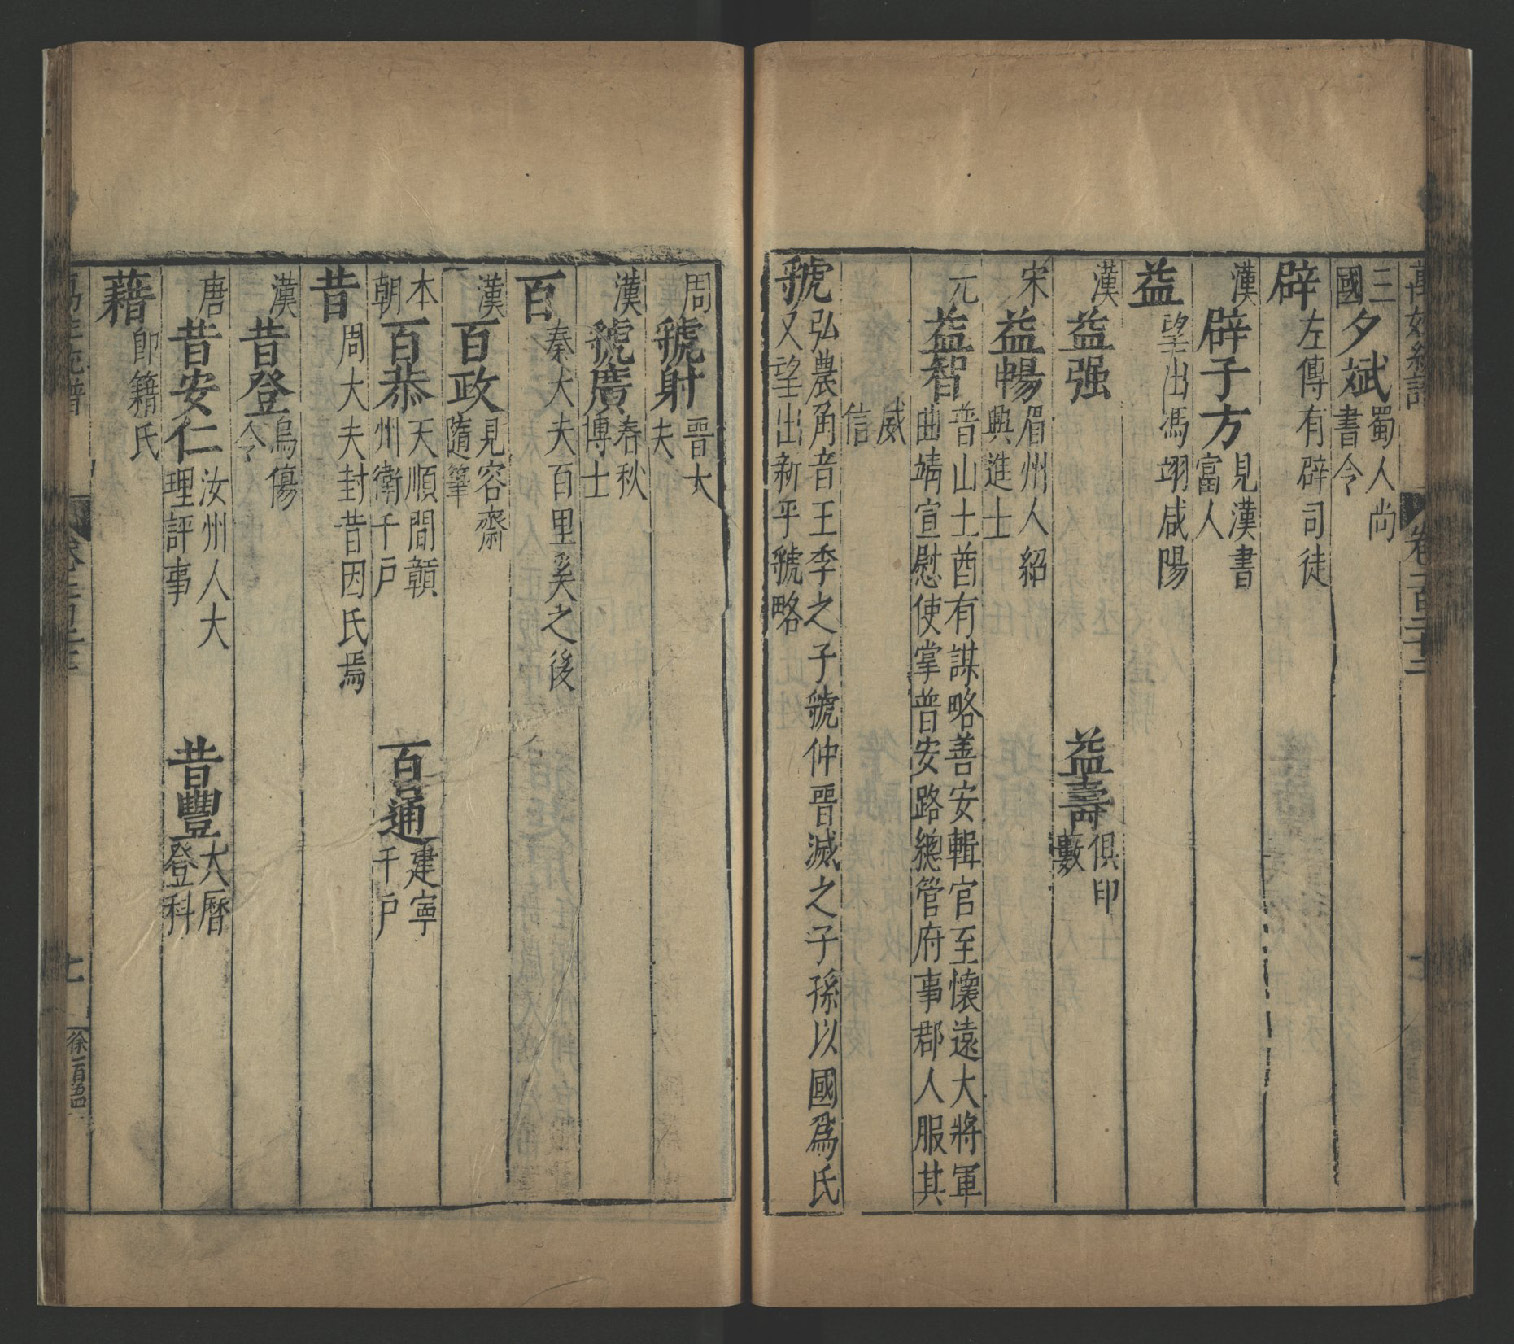 萬姓統譜 卷一百二十二
三國 夕斌 蜀人尚書令
辟 左傳有辟司徒
漢 辟子方 見漢書富人
益 望出馮翊咸陽
漢 益强 益壽 俱印藪
宋 益暢 眉州人紹興進士
元 益智 普山土酋有謀略善安輯官至懷遠大將軍曲靖宣慰使掌普安路總管府事郡人服其
威信
虢 弘農角音王季之子虢仲晉滅之子孫以國爲氏又望出新平虢略
周 虢射 晉大夫
漢 虢廣 春秋博士
百 秦大夫百里奚之後
漢 百政 見容齋隨筆
本朝 百恭 天順間贛州衛千戸 百通 建寧千戸
昔 周大夫封昔因氏焉
漢 昔登 烏傷令
唐 昔安仁 汝州人大理評事 昔豐 大曆登科
藉 卽籍氏